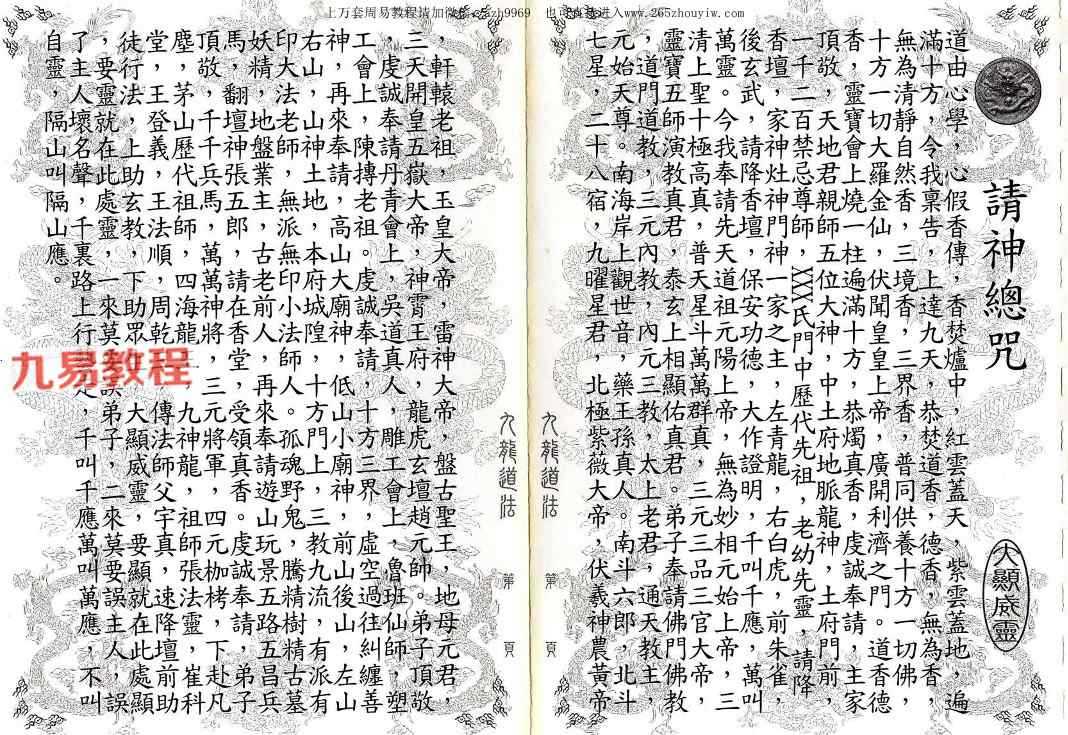 上万套周易教程请加微信 9969 也可直接进入www.265zhouyiw.com
請神總咒
大顯威靈
道由心學,心假香傳,香焚爐中,紅雲蓋天,紫雲蓋地,遍
滿十方,今我稟告,上達九天,恭焚道香,德香,無為香,
無為清靜自然香,三境香,三界香,普同供養十方一切佛,
十方一切大羅金仙,伏聞皇皇上帝,廣開利濟之門。道香德
香,靈寶會上燒一柱遍滿十方,恭燭真香,虔誠奉請,主家
頂敬,天地君親師五位大神,中土府地脈龍神,土府門前,
一千二百禁忌尊師,XXX氏門中歷代先祖,老幼先靈,請降
香壇,家神灶神門神一家之主,左青龍,右白虎,前朱雀,
後玄武,請降香壇,保安功德,大作證明,千叫千應,萬叫
萬靈。今我奉請先天道祖元陽上帝,無為妙相元始上帝,三
清上聖十極高真,普天星斗萬萬群真,三元三品三官大帝,
靈寶五師演教真君,泰玄上相顯佑真君。弟子奉請佛門佛教
,道門道教,三元內教,內元三教,太上老君,通天教主,
元始天尊。南海岸上觀世音,藥王孫真人。南斗六郎,北斗
七星,二十八宿,九曜星君,北極紫薇大帝,伏羲神農黃帝
九龍道法 第 頁
九龍道法 第 頁
,軒轅老祖,玉皇大帝,雷神大帝,盤古聖王,地母元君,
三天開皇五嶽大帝,神霄王府,龍虎玄壇趙元帥。弟子頂敬
,虔誠奉請丹青會上,吳道真人,雕工會上,魯班仙師,塑
工會上,陳摶老祖。虔誠奉請,十方三界,虛空過往糾纏善
神,再來奉請,高山大廟神,低山小廟神,前山後山,左山
右山,山神土地,本府城隍,十方門上,三教九流,有派有
印大法老師,無派無印小法師人。孤魂野鬼,騰精樹精古墓
妖精,地盤業主,古老前人,再來奉請遊山玩景五路五昌兵
馬,翻壇神張五郎,請在香堂,受領真香。虔誠奉請,弟子
頂敬,千千兵馬,萬萬神將,三元將軍,四元枷栲,下赴凡
塵,茅山歷代祖師,四海龍王,九神龍,祖師張法靈,崔科
堂,王登義,王法順,周乾,傳法師父宇真,速降壇前助
徒行法,上助玄教,下助眾,大顯威靈,要顯就在此處顯
,要靈就在此處靈,一來莫誤弟子,二來莫要誤主人,誤
了主人壞名聲,千裏路上行,千叫千應萬叫萬應,不叫
自靈,隔山叫隔山應。
九易教程